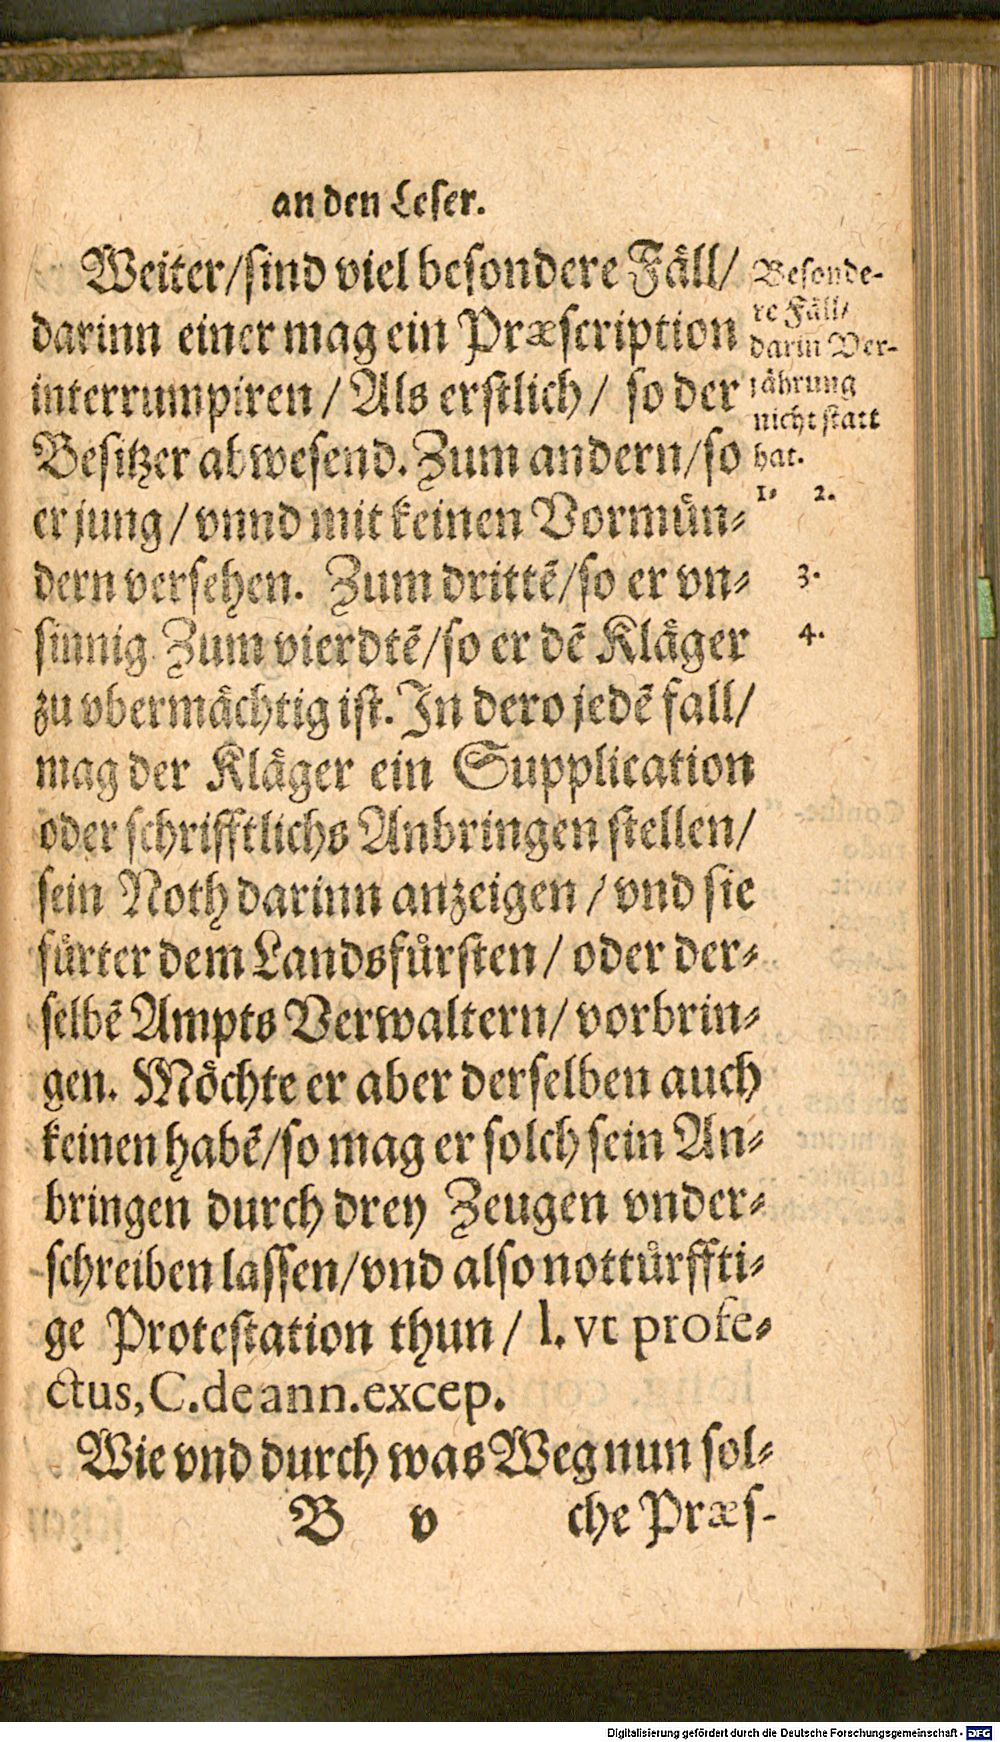 an den Leser.
Weiter/sind viel besondere Fäll/
darinn einer mag ein Præscription
interrumpiren / Als erstlich / so der
Besitzer abwesend. Zum andern/so
er jung / vnnd mit keinen Vormün-
dern versehen. Zum drittẽ/so er vn-
sinnig Zum vierdtẽ/so er dẽ Kläger
zu vbermächtig ist. In dero jedẽ fall/
mag der Kläger ein Supplication
oder schrifftlichs Anbringen stellen/
sein Noth darinn anzeigen / vnd sie
fürter dem Landsfürsten / oder der-
selbẽ Ampts Verwaltern/ vorbrin-
gen. Möchte er aber derselben auch
keinen habẽ/so mag er solch sein An-
bringen durch drey Zeugen vnder-
schreiben lassen/vnd also nottürffti-
ge Protestation thun / l. vt profe-
ctus, C. de ann. excep.
Wie vnd durch was Weg nun sol-
B v che Præs-
Besonde-
re Fäll/
darin Ver-
jährung
nicht statt
hat.
1. 2.
3.
4.
Digitalisierung gefördert durch die Deutsche Forschungsgemeinschaft - DFG